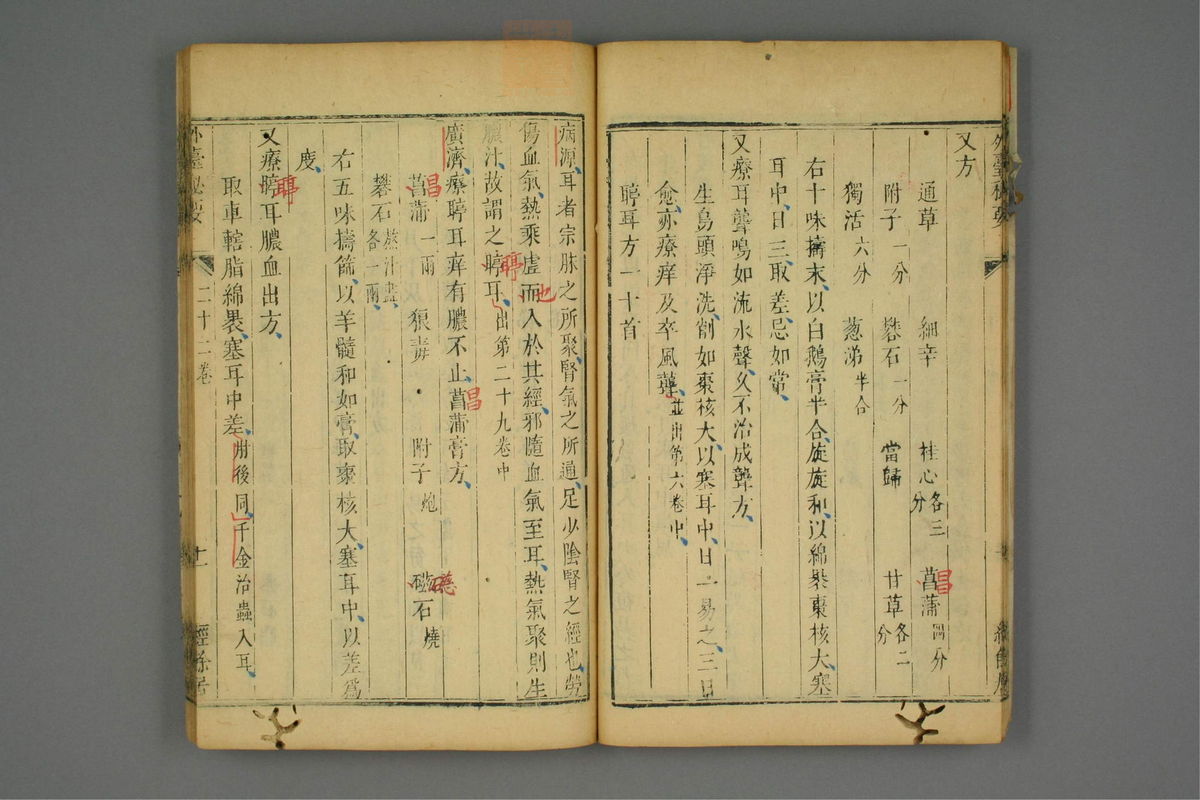 又方
通草 細辛 桂心各三分 菖蒲四分
附子一分 礬石一分 當歸 甘草各二分
獨活六分 葱涕半合
右十味擣末以白鵝膏半合旋旋和以綿褁棗核大塞
耳中日三取差忌如常
又療耳聾鳴如流水聲久不治成聾方
生烏頭淨洗削如棗核大以塞耳中日一易之三日
愈亦療痒及卒風聾並出第六卷中
聤耳方一十首
病源耳者宗脉之所聚腎氣之所通足少陰腎之經也勞
傷血氣熱乘虛而入於其經邪隨血氣至耳熱氣聚則生
膿汁故謂之聤耳出第二十九卷中
廣濟療聤耳痒有膿不止菖蒲膏方
菖蒲一兩 狼毒 附子炮 磁石燒
礬石蒸汁盡各一兩
右五味擣篩以羊髓和如膏取棗核大塞耳中以差爲
度
又療聤耳膿血出方
取車轄脂綿褁塞耳中差肘後同千金治蟲入耳
外臺秘要 二十二卷 十一 經餘居
昌
昌
聤
也
昌
聤